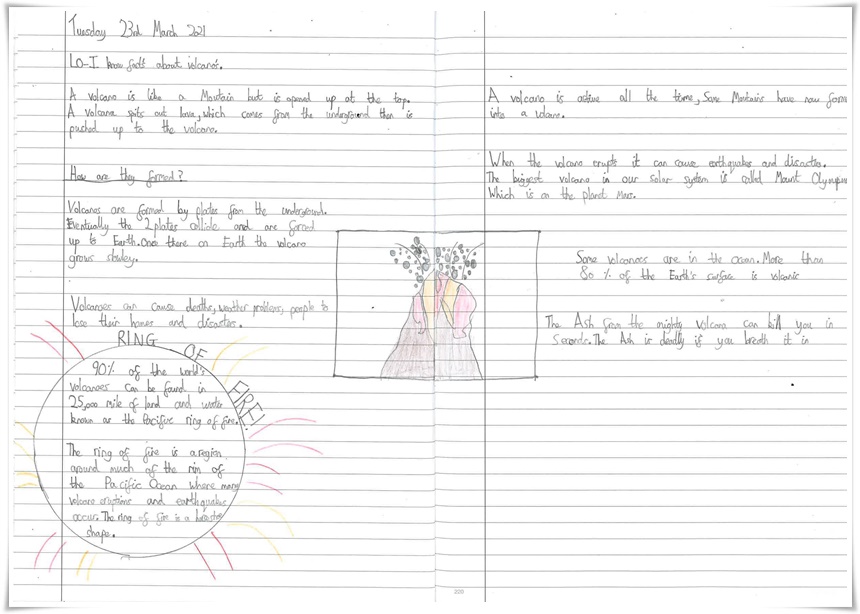 Tuesday 23rd March 2021
LO-I know facts about volcanos.
A volcano is like a Mountain but is opened up at the top.
A volcano spits out lava, which comes from the underground then is
pushed up to the volcano.
How are they formed?
Volcanos are formed by plates from the underground.
Eventually the 2 plates collide and are formed
up to Earth. Once there on Earth the volcano
grows slowley.
Volcanoes can cause deaths, weather problems, people to
lose their homes and disasters.
RING OF FIRE!
90% of the world's
volcanoes can be found in
25,000 mile of land and water
known as the Pacifive ring of fire.
The ring of fire is a region
around much of the rim of
the Pacific Ocean where many
volcano eruptions and earthquakes
occur. The ring of fire is a
shape.
A volcano is active all the time, Some Mountains have now form
into a volcano.
When the volcano erupts it can cause earthquakes and disasters.
The biggest volcano in our solar system is called Mount Olympius
Which is on the planet Mars.
Some volcanoes are in the ocean. More than
80 % of the Earth's surface is volcanic
The Ash from the mighty volcano can kill you in
Seconds. The Ash is deadly if you breath it in